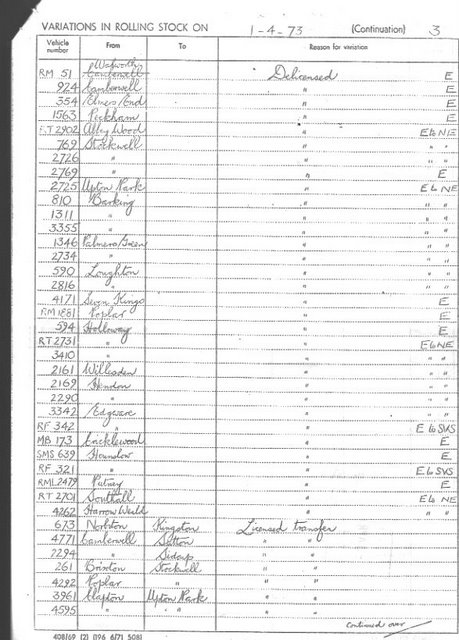 VARIATIONS IN ROLLING STOCK ON 1-4-73 (Continuation) 3
Vehicle number From To Reason for variation
Walworth
RM 51 Camberwell Delicensed E
924 Camberwell " E
354 Elmers End " E
1563 Peckham " E
RT 2902 Abbey Wood " E to NE
769 Stockwell " " "
2726 " " " "
2769 " " E
2725 Upton Park " E to NE
810 Barking " " "
1311 " " " "
3355 " " " "
1346 Palmers Green " " "
2734 " " " "
590 Loughton " " "
2816 " " " "
4171 Seven Kings " E
RM 1881 Poplar " E
594 Holloway " E
RT 2731 " " E to NE
3410 " " " "
2161 Willesden " " "
2169 Hendon " " "
2290 " " " "
3342 Edgware " " "
RF 342 " " E to SVS
MB 173 Cricklewood " E
SMS 639 Hounslow " E
RF 321 " " E to SVS
RML 2479 Putney " E
RT 2701 Southall " E to NE
4262 Harrow Weald " " "
673 Norbiton Kingston Licensed transfer
4771 Camberwell Sutton " "
2294 " Sidcup " "
261 Brixton Stockwell " "
4292 Poplar " " "
3961 Clapton Upton Park " "
4595 " " " " "
Continued over
408/69 (2) (196 6/71 508)